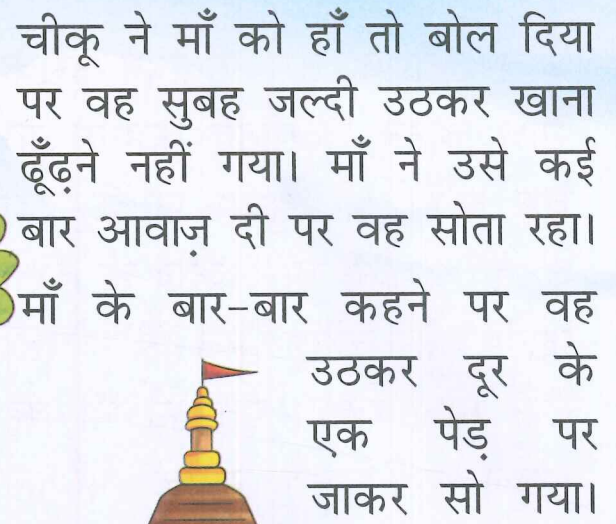 चीकू ने माँ को हाँ तो बोल दिया
पर वह सुबह जल्दी उठकर खाना
ढूँढ़ने नहीं गया। माँ ने उसे कई
बार आवाज़ दी पर वह सोता रहा।
माँ के बार-बार कहने पर वह
उठकर दूर के
एक पेड़ पर
जाकर सो गया।